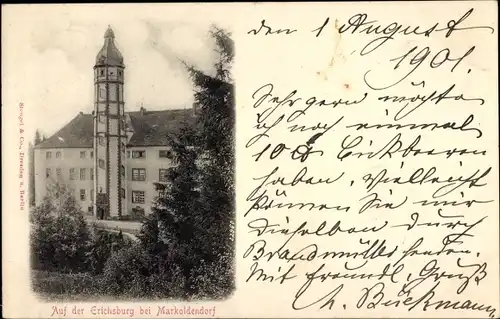 den 1 August
1901.
Sehr gern möchte
ich noch einmal
10 Bickbeeren
haben, vielleicht
können Sie mir
dieselben durch
Brandmüller senden.
Mit freundl. Gruß
H. Bückmann
Stengel & Co., Dresden u. Berlin
Auf der Erichsburg bei Markoldendorf